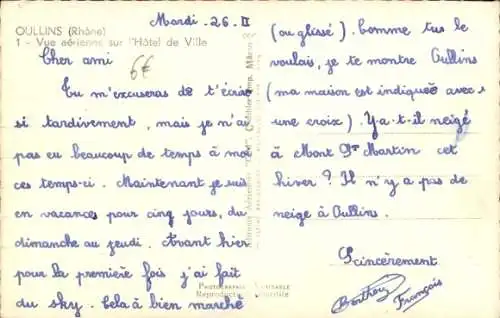 OULLINS (Rhône)
1 - Vue aérienne sur l'Hôtel de Ville
Mardi - 26 - II
6€
Cher ami
Tu m'excuseras de t'écrire
si tardivement, mais je n'ai
pas eu beaucoup de temps à moi
ces temps-ci. Maintenant je suis
en vacances pour cinq jours, du
dimanche au jeudi. Avant hier
pour la première fois j'ai fait
du sky. Cela à bien marché
(ou glissé). Comme tu le
voulais, je te montre Oullins
(ma maison est indiqueé avec
une croix). Y-a-t-il neigé
à Mont St Martin cet
hiver ? Il n'y a pas de
neige à Oullins.
Scincèrement.
François